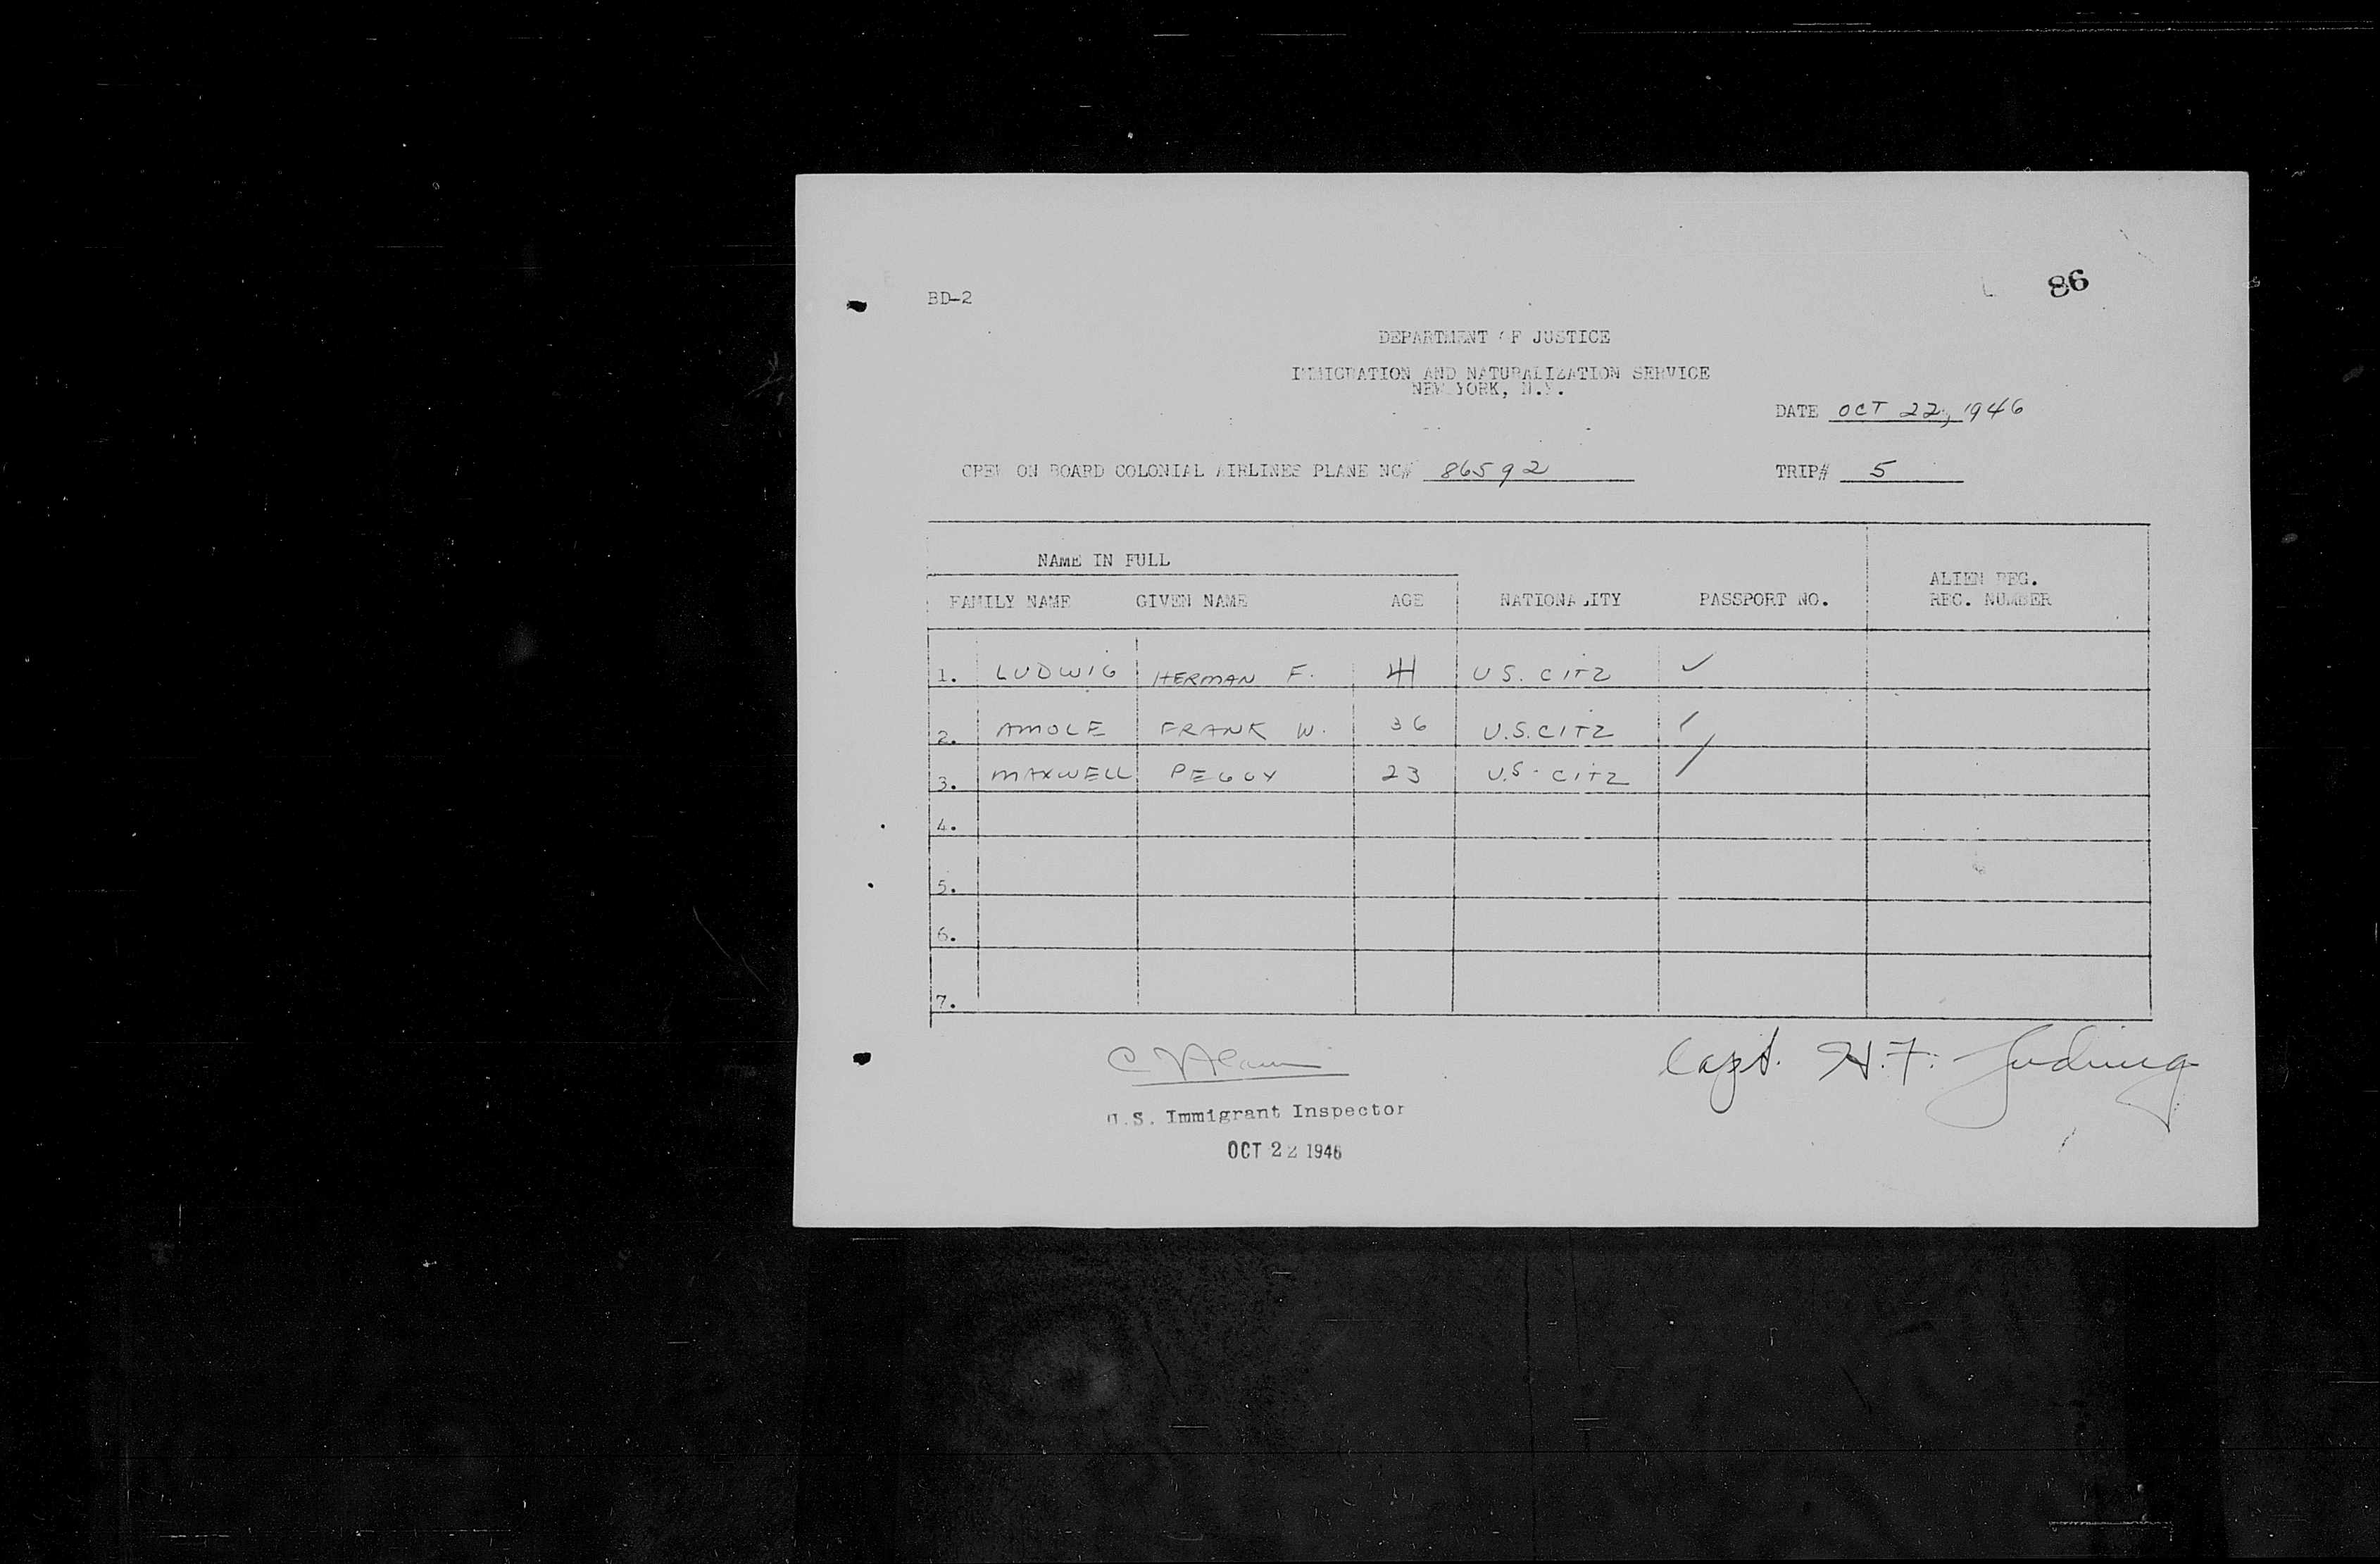 86
BD-2
DEPARTMENT OF JUSTICE
IMMIGRATION AND NATURALIZATION SERVICE
NEW YORK, N.Y.
DATE OCT 22, 1946
CREW ON BOARD COLONIAL AIRLINES PLANE NC# 86592 TRIP# 5
NAME IN FULL
FAMILY NAME GIVEN NAME AGE NATIONALITY PASSPORT NO. ALIEN REG. REC. NUMBER
1. LUDWIG HERMAN F. 41 U S. CITZ ✓
2. AMOLE FRANK W. 36 U.S. CITZ
3. MAXWELL PEGGY 23 U.S. CITZ
4.
5.
6.
7.
Capt. H.F. Ludwig
U.S. Immigrant Inspector
OCT 22 1946